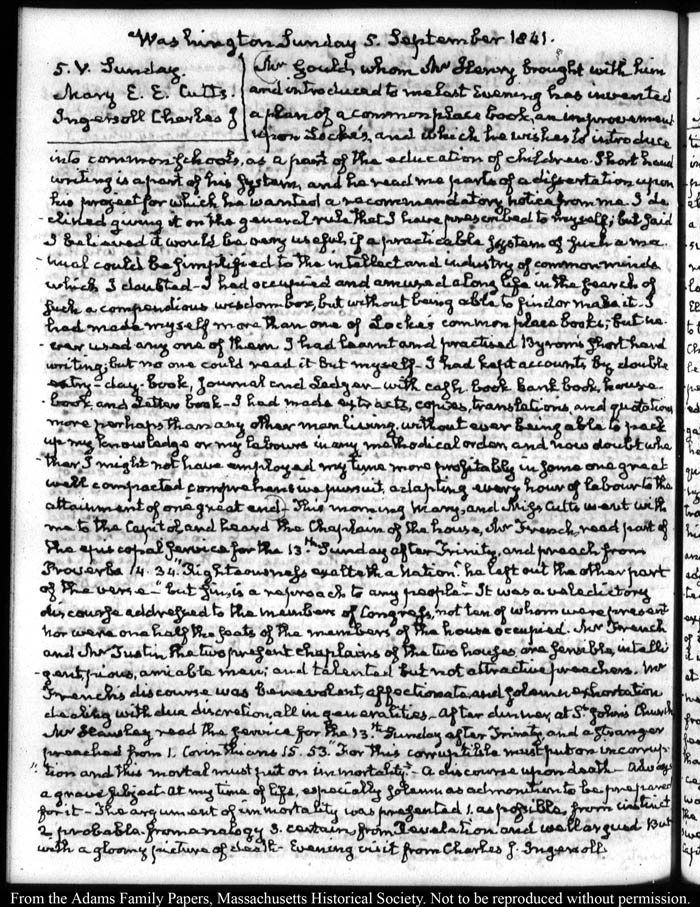 Washington Sunday 5. September 1841.
5. V. Sunday.
Mary E. E. Cutts.
Ingersoll Charles J
Mr Gould, whom Mr Henry brought with him
and introduced to me last Evening has invented
a plan of a common place book, an improvement
upon Locke's, and which he wishes to introduce
into common schools, as a part of the education of children. Short hand
writing is a part of his System, and he read me parts of a dissertation upon
his project for which he wanted a recommendatory notice from me. I de
-clined giving it on the general rule that I have prescribed to myself; but said
I believed it would be very useful, if a practicable system of such a ma
-nual could be simplified to the intellect and industry of common minds
which I doubted. I had occupied and amused a long life in the search of
such a compendious wisdom box, but without being able to find or make it. I
had made myself more than one of Locke's common place books; but ne
-ver used any one of them. I had learnt and practised Byrom's short hand
writing; but no one could read it but myself. I had kept accounts by double
entry- day-book, Journal and Ledger- with cash book bank book, house
-book and Letter book- I had made extracts, copies, translations, and quotations
more perhaps than any other man living, without ever being able to pack
up my knowledge or my labours in any methodical order, and now doubt whe
-ther I might not have employed my time more profitably in some one great
well compacted comprehensive pursuit, adapting every hour of labour to the
attainment of one great end- This morning Mary, and Miss Cutts went with
me to the Capitol and heard the Chaplain of the house, Mr French, read part of
the episcopal service for the 13th Sunday after Trinity, and preach from
Proverbs 14. 34. "Righteousness exalteth a Nation." he left out the other part
of the verse- "but sin, is a reproach to any people"- It was a valedictory
discourse addressed to the members of Congress, not ten of whom were present
nor were one half the seats of the members of the house occupied. Mr French
and Mr Tustin the two present chaplains of the two houses, are sensible, intelli
-gent, pious, amiable men; and talented but not attractive preachers. Mr
French's discourse was benevolent, affectionate and solemn exhortation
dealing with due discretion, all in generalities- After dinner, at St John's Church
Mr Hawley read the service for the 13th Sunday after Trinity, and a stranger
preached from 1. Corinthians 15. 53. "For this corruptible must put on incorrup
"tion and this mortal must put on immortality"- A discourse upon death- Always
a grave subject- At my time of life, especially solemn as admonition to be prepared
for it- The argument of immortality was presented 1. as possible, from instinct
2 probable from analogy 3. certain from Revelation and well argued But
with a gloomy picture of death- Evening visit from Charles J. Ingersoll
From the Adams Family Papers, Massachusetts Historical Society. Not to be reproduced without permission.